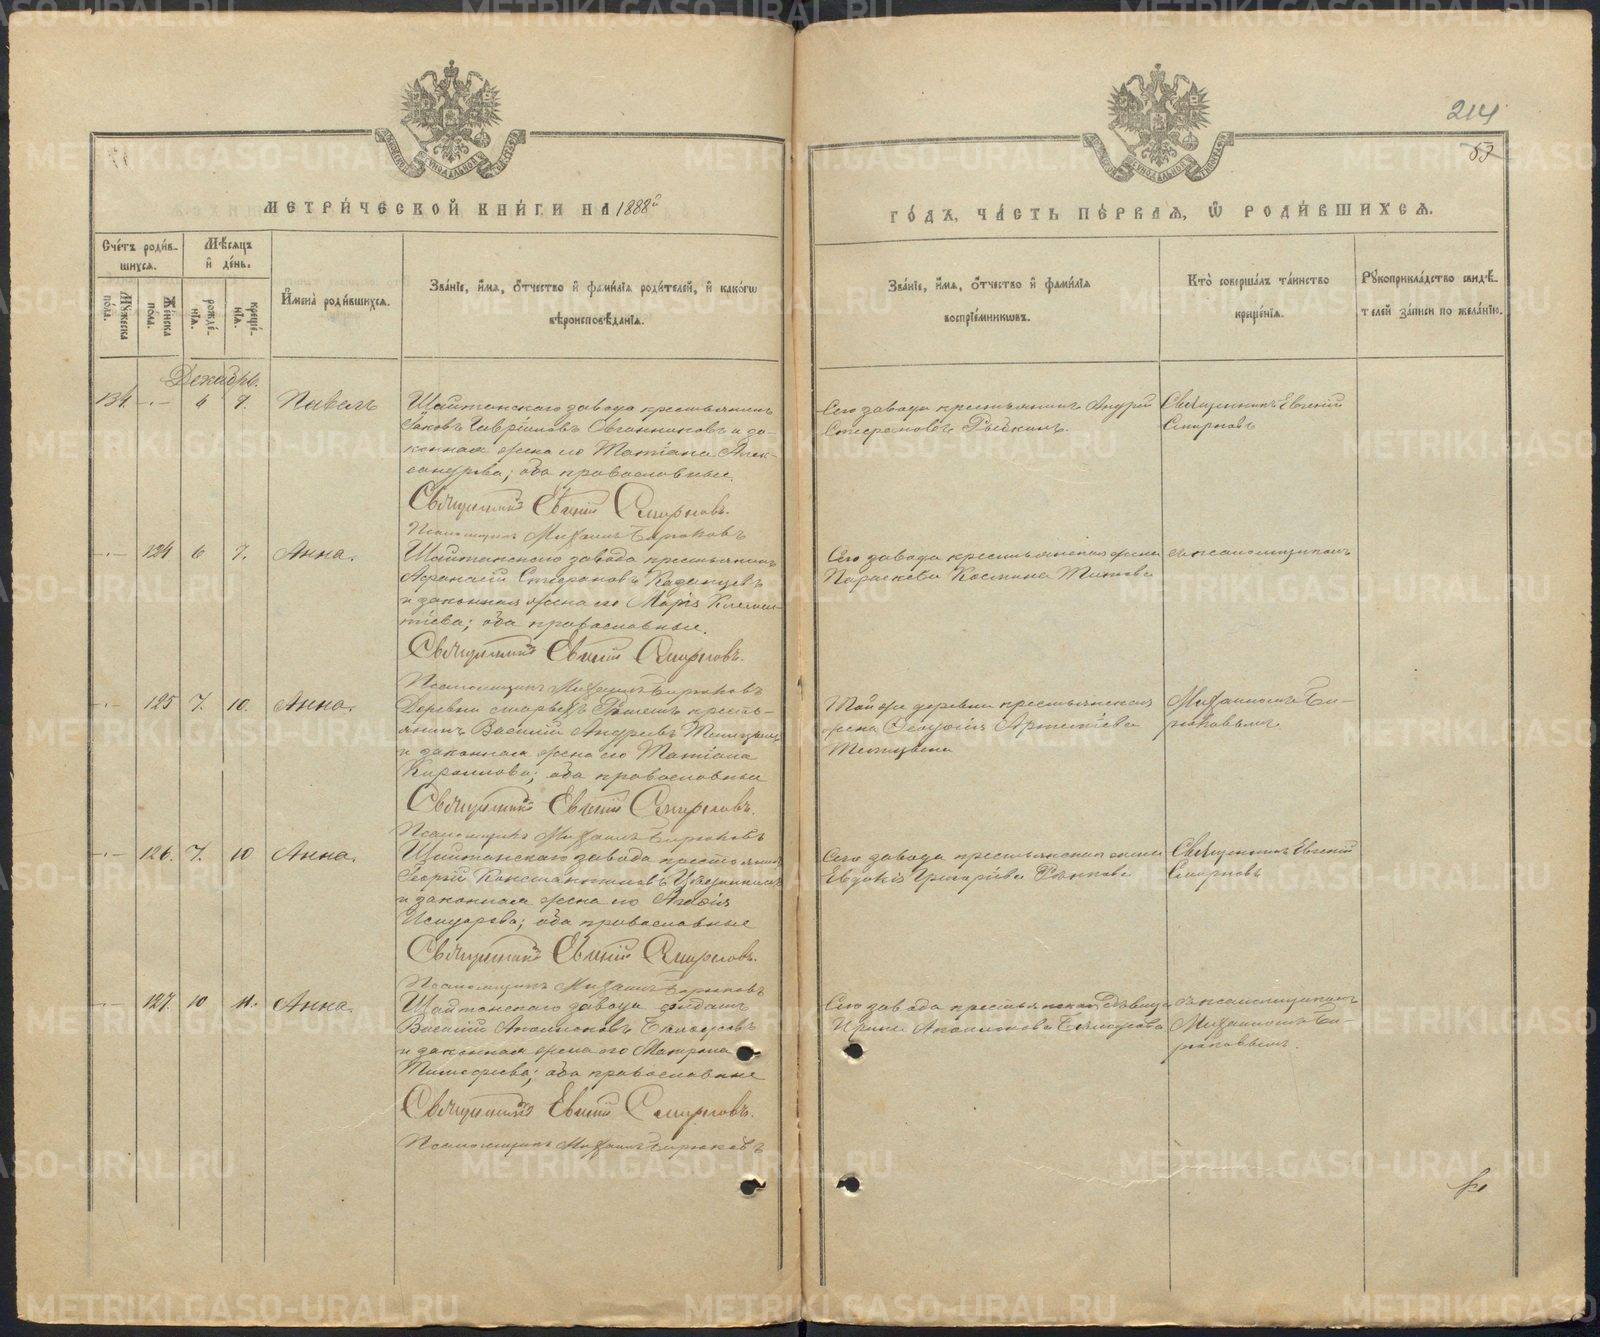 214
53
МЕТРИ́ЧЕСКОЙ КНИ́ГИ НА 1888й
ГО́ДЪ, ЧА́СТЬ ПЕ́РВАЯ, Ѡ҆ РОДИ́ВШИХСЯ.
Сче́тъ роди́в-
шихся.
Мѣ́сяцъ
и҆ де́нь.
Му́жеска по́ла.
Же́нска по́ла.
рожде́нїя.
креще́нїя.
И҆мена̀ роди́вшихся.
Зва́нїе, и҆́мя, ѻ҆́тчество и҆ фами́лїя роди́телей, и҆ како́гѡ
вѣроисповѣ́данїя.
Зва́нїе, и҆́мя, ѻ҆́тчество и҆ фами́лїя
воспрїе́мникѡвъ.
Кто̀ соверша́лъ та́инство
креще́нїя.
Рꙋкоприкла́дство свидѣ́-
телей за́писи по жела́нїю.
Декабрь.
134. 4 7. Павелъ
Шайтанскаго завода крестьянинъ
Іаковъ Гавріиловъ и за-
конная жена его Татіана Алек-
сандрова; оба православные.
Священникъ Евгеній Смирновъ.
Псаломщикъ Михаилъ Бирюковъ
Сего завода крестьянинъ Андрей
Стефановъ
Священникъ Евгеній
Смирновъ
124 6 7. Анна.
Шайтанскаго завода крестьянинъ
Афанасій Стефановъ Казанцевъ
и законная жена его Марія Климен-
тіева; оба православные.
Священникъ Евгеній Смирновъ.
Псаломщикъ Михаилъ Бирюковъ
Сего завода крестьянская жена
Параскева Космина Титова
съ псаломщикомъ
125 7. 10. Анна.
Деревни кресть-
янинъ Василій Андреевъ
и законная жена его Татіана
Кириллова; оба православные
Священникъ Евгеній Смирновъ.
Псаломщикъ Михаилъ Бирюковъ
Той же деревни крестьянская
жена Артеміева
Михаиломъ Би-
рюковымъ
126. 7. 10 Анна.
Шайтанскаго завода крестьянинъ
Георгій Константиновъ
и законная жена его
Исидорова; оба православные
Священникъ Евгеній Смирновъ.
Псаломщикъ Михаилъ Бирюковъ
Сего завода крестьянская жена
Евдокія Григоріева
Священникъ Евгеній
Смирновъ
127. 10 11. Анна.
Шайтанскаго завода солдатъ
Василій Аполлоновъ Белоусовъ
и законная жена его Матрона
Тимофеева; оба православные
Священникъ Евгеній Смирновъ.
Псаломщикъ Михаилъ Бирюковъ
Сего завода крестьянская дѣвица
Ирина Аполлонова Белоусова
съ псаломщикомъ
Михаиломъ Би-
рюковымъ.
METRIKI.GASO-URAL.RU